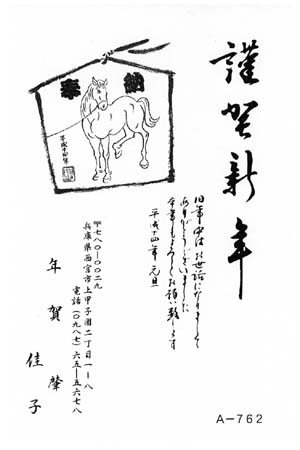 謹賀新年
旧年中はお世話になりまして
ありがとうございました
今年もよろしくお願い致します
平成十四年 元旦
奉納
平成十四年
〒七八〇―〇〇二九
兵庫県西宮市上甲子園二丁目一―八
電話(〇九八七)六五―五六七八
年賀佳肇子
A-762